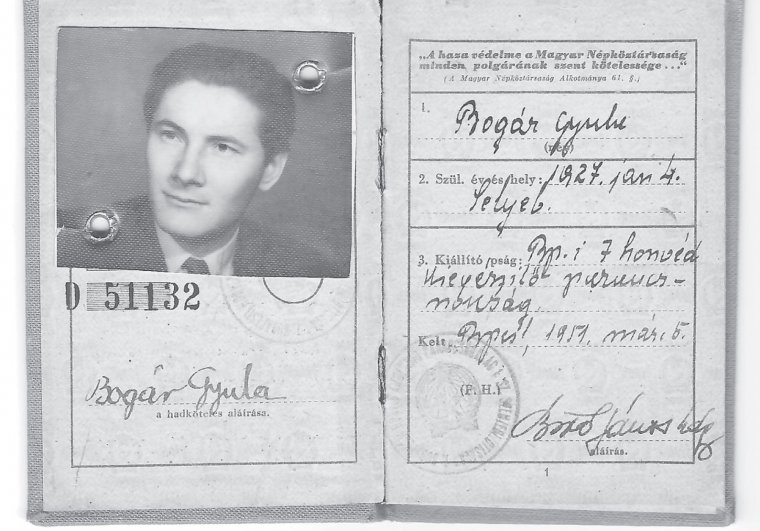 D 51132
Bogár Gyula
a hadköteles aláírása.
„A haza védelme a Magyar Népköztársaság
minden polgárának szent kötelessége ...“
(A Magyar Népköztársaság Alkotmánya 61. §.)
1.
Bogár Gyula
(név)
2. Szül. év és hely: 1927. jan 4.
Selyeb.
3. Kiállító pság: Bp. i 7 honvéd
kiegészítő parancs-
nokság.
Kelt Bpest, 1951. már. 5.
(P. H.)
János hdgy
aláírás.
1